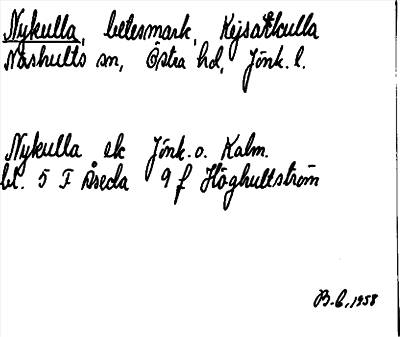 Nykulla, betesmark, Kejsarkulla
Näshults sn, Östra hd, Jönk. l.
Nykulla ek Jönk. o. Kalm.
bl. 5 F Åseda 9 f Höghultström
B.C., 1958